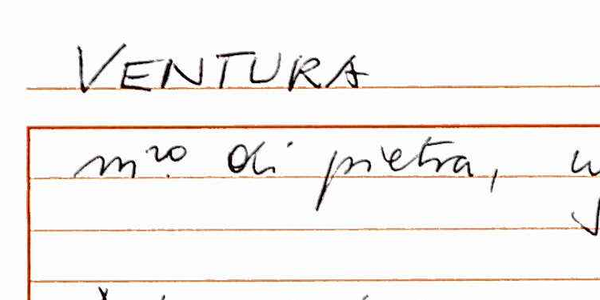 VENTURA
m.ro di pietra,